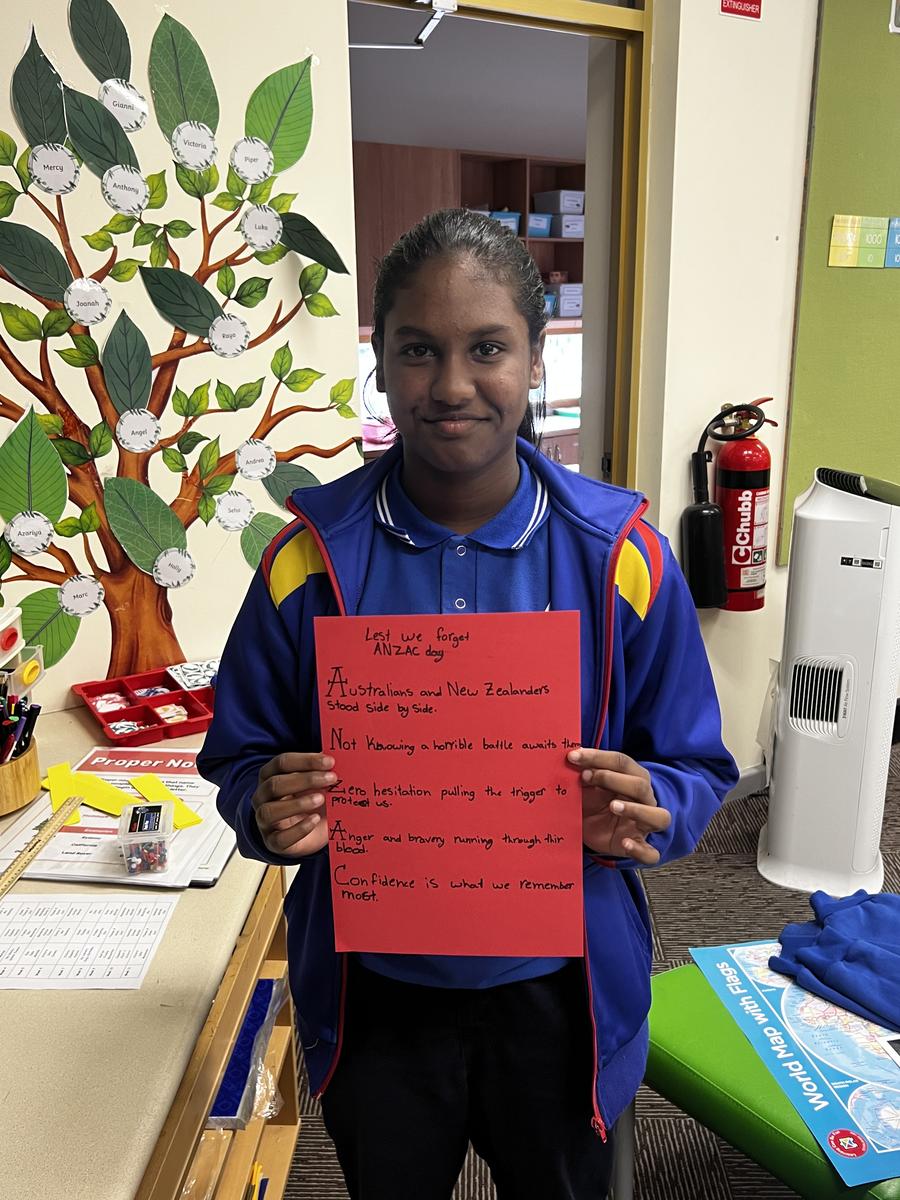 EXTINGUISHER
Gianni
Victoria
Mercy
Piper
Anthony
Luka
Joanah
Raya
Angel
Andrea
Seful
Azariya
Holly
Marc
1000
10
Chubb
Lest we forget
ANZAC day
Australians and New Zealanders
stood side by side.
Not Knowing a horrible battle awaits them
Zero hesitation pulling the trigger to
protect us.
Anger and bravery running through thir
blood.
Confidence is what we remember
most.
Proper No
World Map with Flags